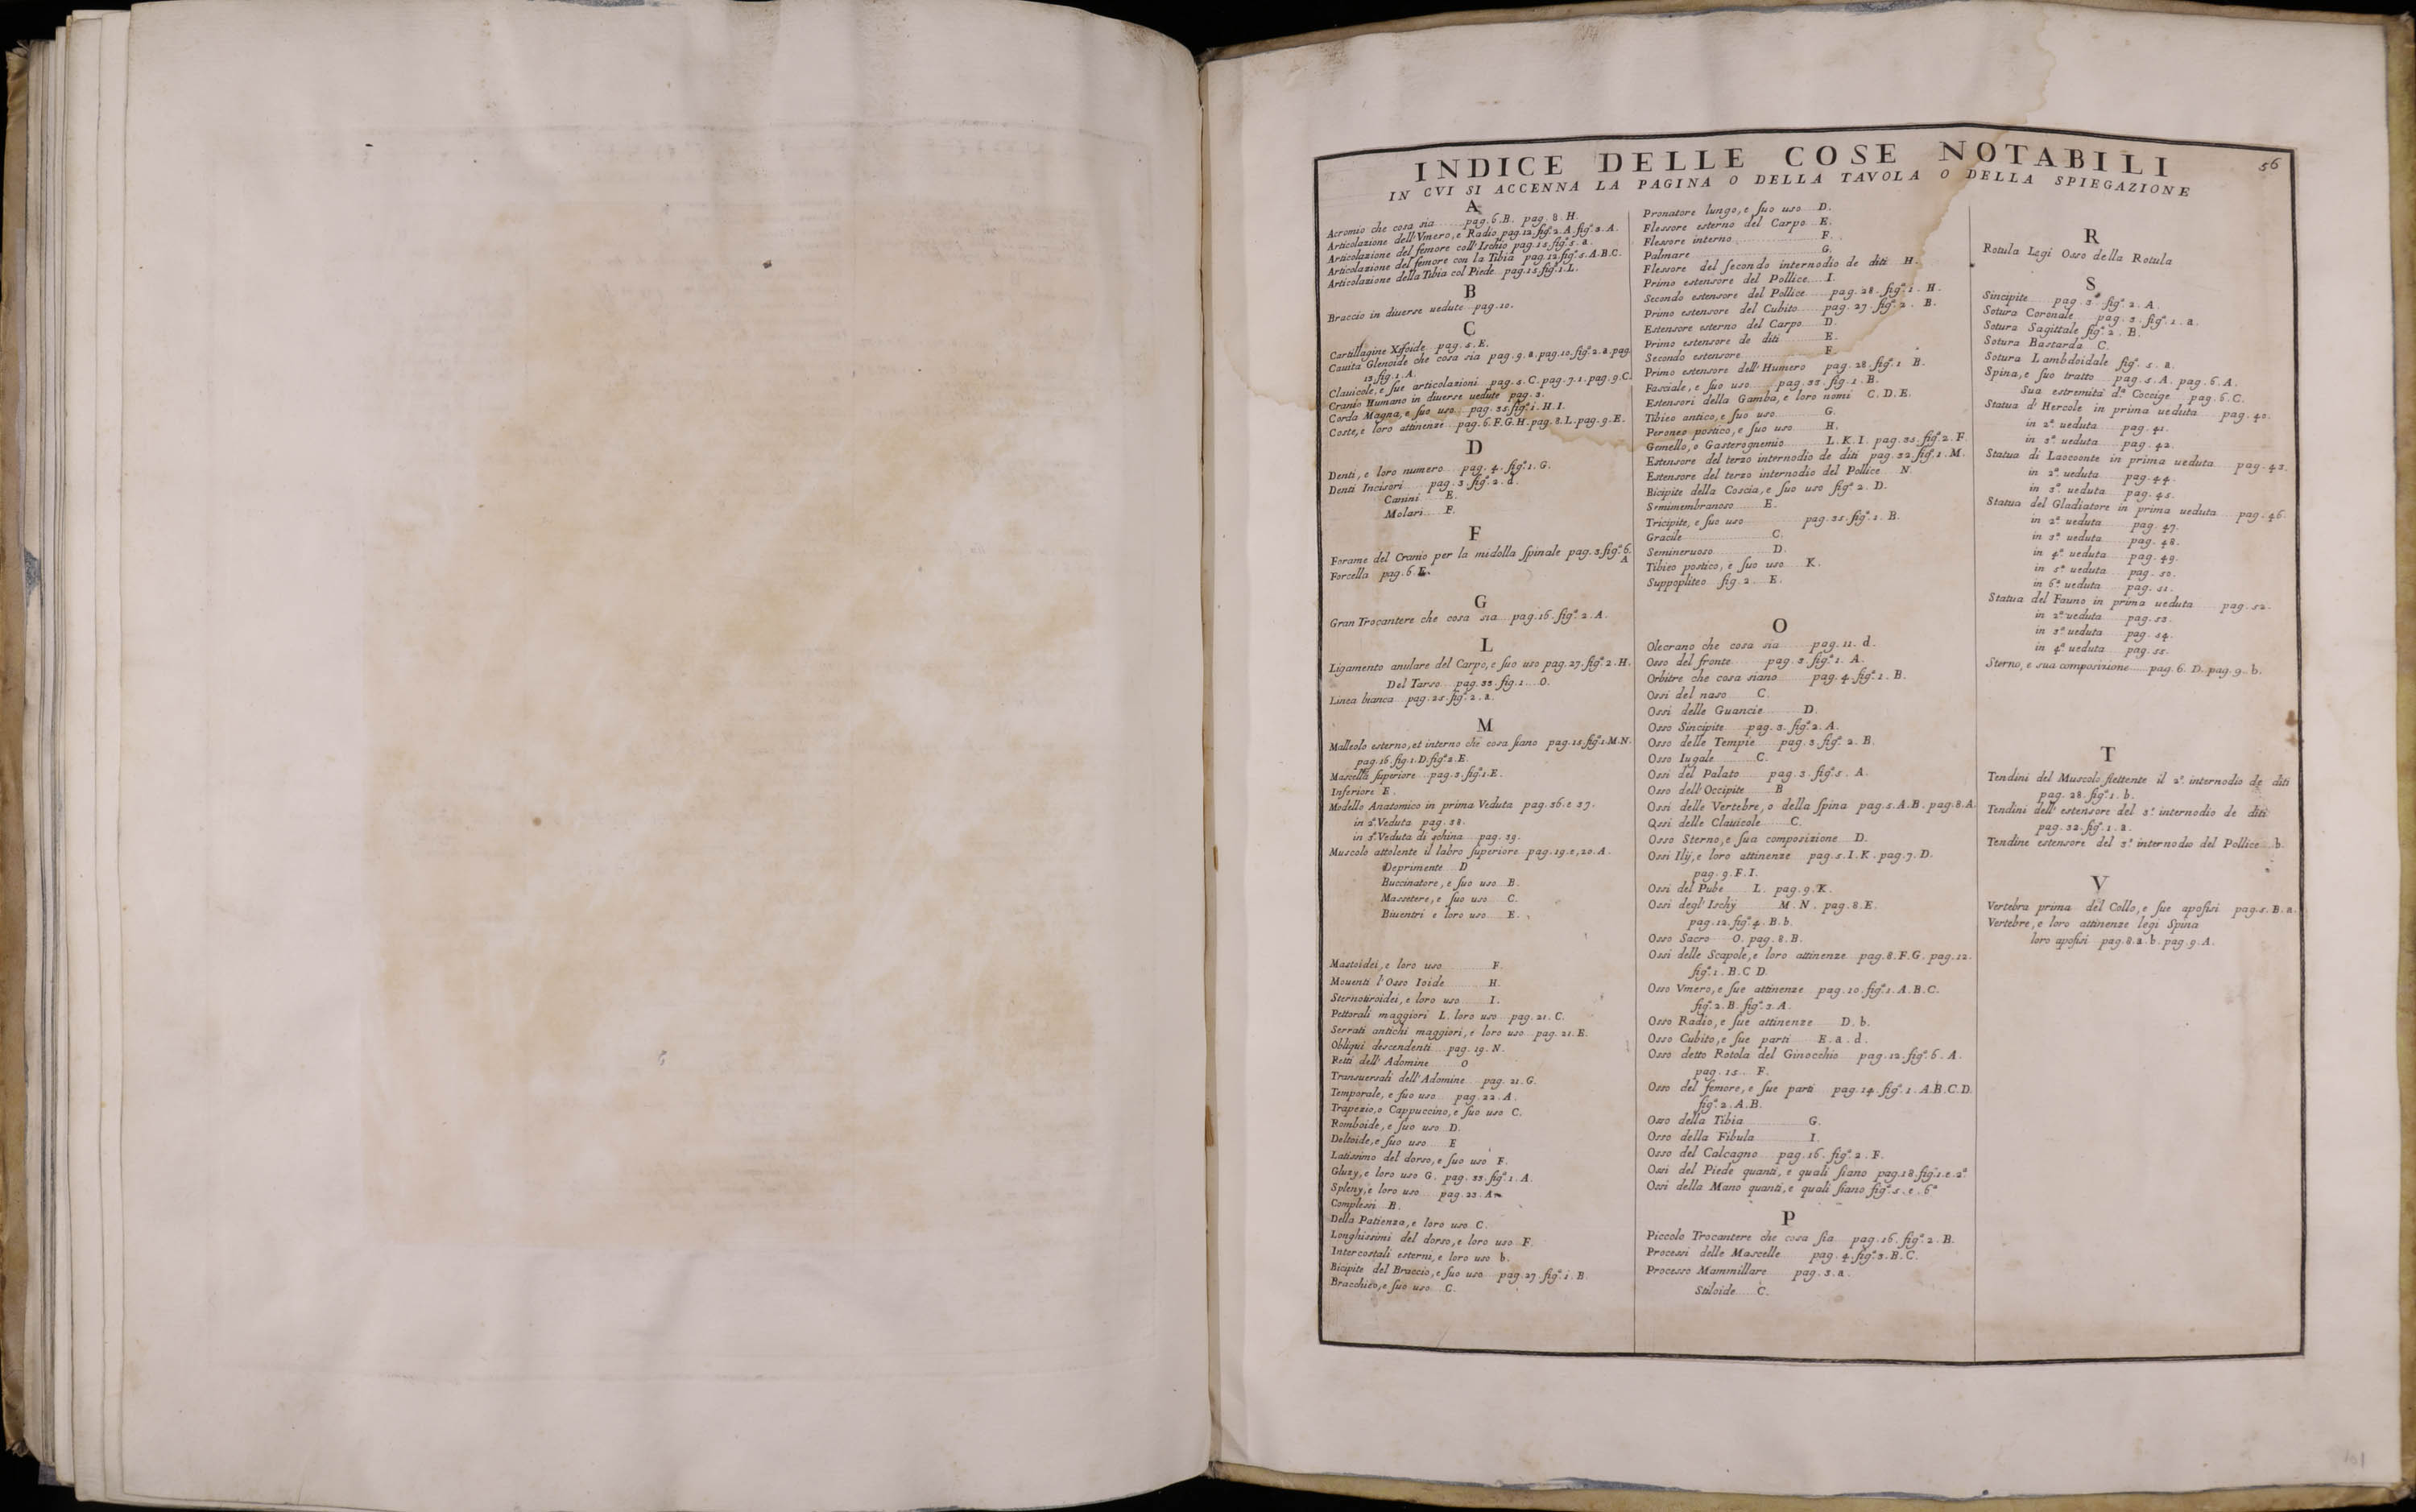 INDICE DELLE COSE NOTABILI
56
IN CVI SI ACCENNA LA PAGINA O DELLA TAVOLA O DELLA SPIEGAZIONE
A
Acromio che cosa sia pag. 6. B. pag. 8. H.
Articolazione dell'Vmero, e Radio pag. 12. figª. 2. A. figª. 3. A.
Articolazione del femore coll'Ischio pag. 12. figª. 5. a.
Articolazione del femore con la Tibia pag. 12. figª. 5. A.B.C.
Articolazione della Tibia col Piede pag. 15. figª. 1. L.
B
Braccio in diuerse uedute pag. 10.
C
Cartillagine Xifoide pag. 5. E.
Cauita Glenoide che cosa sia pag. 9. a. pag. 10. figª. 2. a. pag.
13. fig. 1. A.
Clauicole, e sue articolazioni pag. 5. C. pag. 7. 1. pag. 9. C.
Cranio Humano in diuerse uedute pag. 3.
Corda Magna, e suo uso pag. 35. figª. 1. H. I.
Coste, e loro attinenze pag. 6. F. G. H. pag. 8. L. pag. 9. E.
D
Denti, e loro numero pag. 4. figª. 1. G.
Denti Incisori pag. 3. figª. 2. d.
Canini E.
Molari F.
F
Forame del Cranio per la midolla spinale pag. 3. figª. 6.
A
Forcella pag. 6. E.
G
Gran Trocantere che cosa sia pag. 16. figª. 2. A.
L
Ligamento anulare del Carpo, e suo uso pag. 27. figª. 2. H.
Del Tarso pag. 33. fig. 1. O.
Linea bianca pag. 25. figª. 2. a.
M
Malleolo esterno, et interno che cosa siano pag. 15. figª. 1. M. N.
pag. 16. fig. 1. D. figª. 2. E.
Mascella superiore pag. 3. figª. 1. E.
Inferiore F.
Modello Anatomico in prima Veduta pag. 36. e 37.
in 2ª. Veduta pag. 38.
in 3ª. Veduta di schina pag. 39.
Muscolo attolente il labro superiore pag. 19. e, 20. A.
Deprimente D
Buccinatore, e suo uso B.
Massetere, e suo uso C.
Biuentri e loro uso E.
Mastoidei, e loro uso F.
Mouenti l'Osso Ioide H.
Sternotiroidei, e loro uso I.
Pettorali maggiori L. loro uso pag. 21. C.
Serrati antichi maggiori, e loro uso pag. 21. E.
Obliqui descendenti pag. 19. N.
Retti dell'Adomine O
Transuersali dell'Adomine pag. 21. G.
Temporale, e suo uso pag. 22. A.
Trapezio, o Cappuccino, e suo uso C.
Romboide, e suo uso D.
Deltoide, e suo uso E
Latissimo del dorso, e suo uso F.
Gluzy, e loro uso G. pag. 33. figª. 1. A.
Spleny, e loro uso pag. 23. A
Complessi B.
Della Patienza, e loro uso C.
Longhissimi del dorso, e loro uso F.
Intercostali esterni, e loro uso b.
Bicipite del Braccio, e suo uso pag. 27. figª. 1. B.
Bracchieo, e suo uso C.
Pronatore lungo, e suo uso D.
Flessore esterno del Carpo E.
Flessore interno F.
Palmare G.
Flessore del secondo internodio de diti H.
Primo estensore del Pollice I.
Secondo estensore del Pollice pag. 28. figª. 1. H.
Primo estensore del Cubito pag. 27. figª. 2. B.
Estensore esterno del Carpo D.
Primo estensore de diti E.
Secondo estensore F
Primo estensore dell'Humero pag. 28. figª. 1 B.
Fasciale, e suo uso pag. 33. fig. 1. B.
Estensori della Gamba, e loro nomi C. D. E.
Tibieo antico, e suo uso G.
Peroneo postico, e suo uso H.
Gemello, o Gasterognemio L. K. I. pag. 35. figª. 2. F.
Estensore del terzo internodio de diti pag. 32. figª. 1. M.
Estensore del terzo internodio del Pollice N.
Bicipite della Coscia, e suo uso figª. 2. D.
Semimembranoso E.
Tricipite, e suo uso pag. 35. figª. 1. B.
Gracile C.
Semineruoso D.
Tibieo postico, e suo uso K.
Suppopliteo fig. 2. E.
O
Olecrano che cosa sia pag. 11. d.
Osso del fronte pag. 3. figª. 1. A.
Orbitre che cosa siano pag. 4. figª. 1. B.
Ossi del naso C.
Ossi delle Guancie D.
Osso Sincipite pag. 3. figª. 2. A.
Osso delle Tempie pag. 3. figª. 2. B.
Osso Iugale C.
Ossi del Palato pag. 3. figª. 5. A.
Osso dell'Occipite B
Ossi delle Vertebre, o della spina pag. 5. A. B. pag. 8. A.
Ossi delle Clauicole C.
Osso Sterno, e sua composizione D.
Ossi Ilij, e loro attinenze pag. 5. I. K. pag. 7. D.
pag. 9. F. I.
Ossi del Pube L. pag. 9. K.
Ossi degl'Ischij M. N. pag. 8. E.
pag. 12. figª. 4. B. b.
Osso Sacro O. pag. 8. B.
Ossi delle Scapole, e loro attinenze pag. 8. F. G. pag. 12.
figª. 1. B. C D.
Osso Vmero, e sue attinenze pag. 10. figª. 1. A. B. C.
figª. 2. B. figª. 3. A.
Osso Radio, e sue attinenze D. b.
Osso Cubito, e sue parti E. a. d.
Osso detto Rotola del Ginocchio pag. 12. figª. 6. A.
pag. 15. F.
Osso del femore, e sue parti pag. 14. figª. 1. A.B.C.D.
figª. 2. A.B.
Osso della Tibia G.
Osso della Fibula I.
Osso del Calcagno pag. 16. figª. 2. F.
Ossi del Piede quanti, e quali siano pag. 18. figª. 1. e. 2ª
Ossi della Mano quanti, e quali siano figª. 5. e. 6ª
P
Piccolo Trocantere che cosa sia pag. 16. figª. 2. B.
Processi delle Mascelle pag. 4. figª. 3. B. C.
Processo Mammillare pag. 3. a.
Stiloide C.
R
Rotula Legi Osso della Rotula
S
Sincipite pag. 3 figª. 2. A.
Sotura Coronale pag. 3. figª. 1. a.
Sotura Sagittale figª. 2. B.
Sotura Bastarda C.
Sotura Lambdoidale figª. 5. a.
Spina, e suo tratto pag. 5. A. pag. 6. A.
Sua estremità dª. Coccige pag. 6. C.
Statua d'Hercole in prima ueduta pag. 40.
in 2ª. ueduta pag. 41.
in 3ª. ueduta pag. 42.
Statua di Laocoonte in prima ueduta pag. 43.
in 2ª. ueduta pag. 44.
in 3ª. ueduta pag. 45.
Statua del Gladiatore in prima ueduta pag. 46.
in 2ª. ueduta pag. 47.
in 3ª. ueduta pag. 48.
in 4ª. ueduta pag. 49.
in 5ª. ueduta pag. 50.
in 6ª. ueduta pag. 51.
Statua del Fauno in prima ueduta pag. 52.
in 2ª. ueduta pag. 53.
in 3ª. ueduta pag. 54.
in 4ª. ueduta pag. 55.
Sterno, e sua composizione pag. 6. D. pag. 9. b.
T
Tendini del Muscolo flettente il 2º. internodio de diti
pag. 28. figª. 1. b.
Tendini dell'estensore del 3º. internodio de diti
pag. 32. figª. 1. a.
Tendine estensore del 3º. internodio del Pollice b.
V
Vertebra prima del Collo, e sue apofisi pag. 5. B. a.
Vertebre, e loro attinenze legi Spina
loro apofisi pag. 8. a. b. pag. 9. A.
101